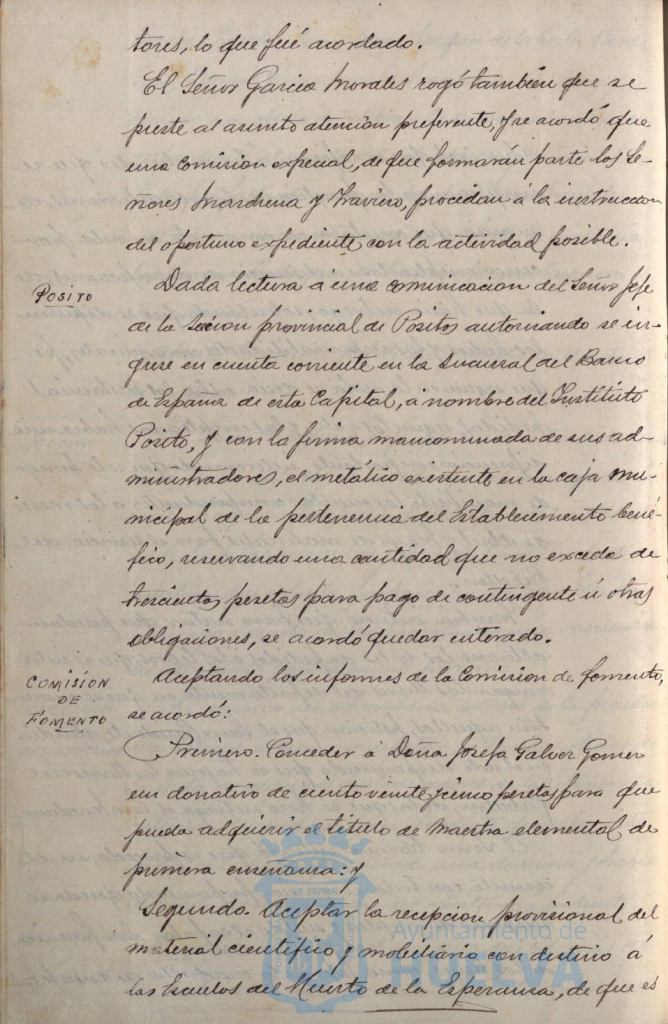 tores, lo que fué acordado.
El Señor Garcia Morales rogó también que se
preste al asunto atención preferente, y se acordó que
una Comision especial, de que formarán parte los Se-
ñores Marchena y Traviero, procedan á la instruccion
del oportuno expediente con la actividad posible.
POSITO
Dada lectura á una comunicacion del Señor Jefe
de la Seccion provincial de Positos autorizando se in-
grese en cuenta corriente en la Sucursal del Banco
de España de esta Capital, á nombre del Instituto
Posito, y con la firma mancomunada de sus ad-
ministradores, el metálico existente en la caja mu-
nicipal de la pertenencia del Establecimiento bené-
fico, reservando una cantidad que no exceda de
trescientas pesetas para pago de contingente ú otras
obligaciones, se acordó quedar enterado.
COMISIÓN
DE
FOMENTO
Aceptando los informes de la Comision de fomento,
se acordó:
Primero. Conceder á Doña Josefa Galvez Gomez
un donativo de ciento veinte y cinco pesetas para que
pueda adquirir el titulo de Maestra elemental de
primera enseñanza: y
Segundo. Aceptar la recepcion provisional del
material científico y mobiliario con destino á
las Escuelas del Huerto de la Esperanza, de que es
Ayuntamiento de
HUELVA